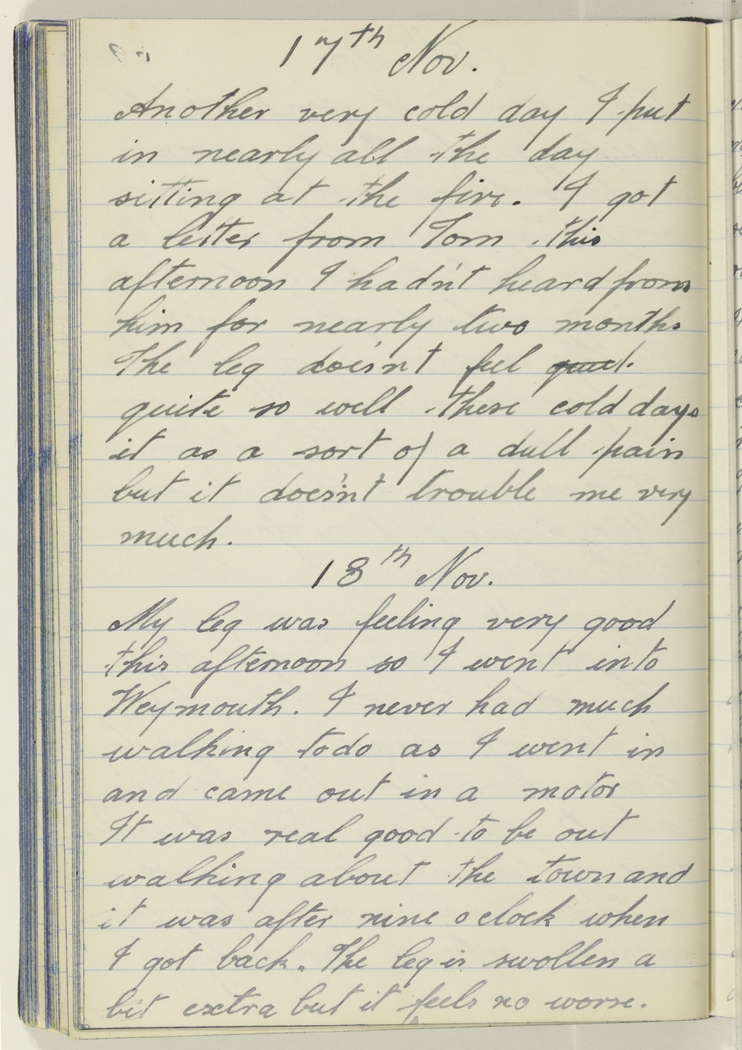 17th Nov.
Another very cold day I put
in nearly all the day
sitting at the fire. I got
a letter from Tom this
afternoon I hadn't heard from
him for nearly two months
The leg does'nt feel
quite so well these cold days
it as a sort of a dull pain
but it does'nt trouble me very
much.
18th Nov.
My leg was feeling very good
this afternoon so I went into
Weymouth. I never had much
walking to do as I went in
and came out in a motor
It was real good to be out
walking about the town and
it was after nine o clock when
I got back. The leg is swollen a
bit extra but it feels no worse.